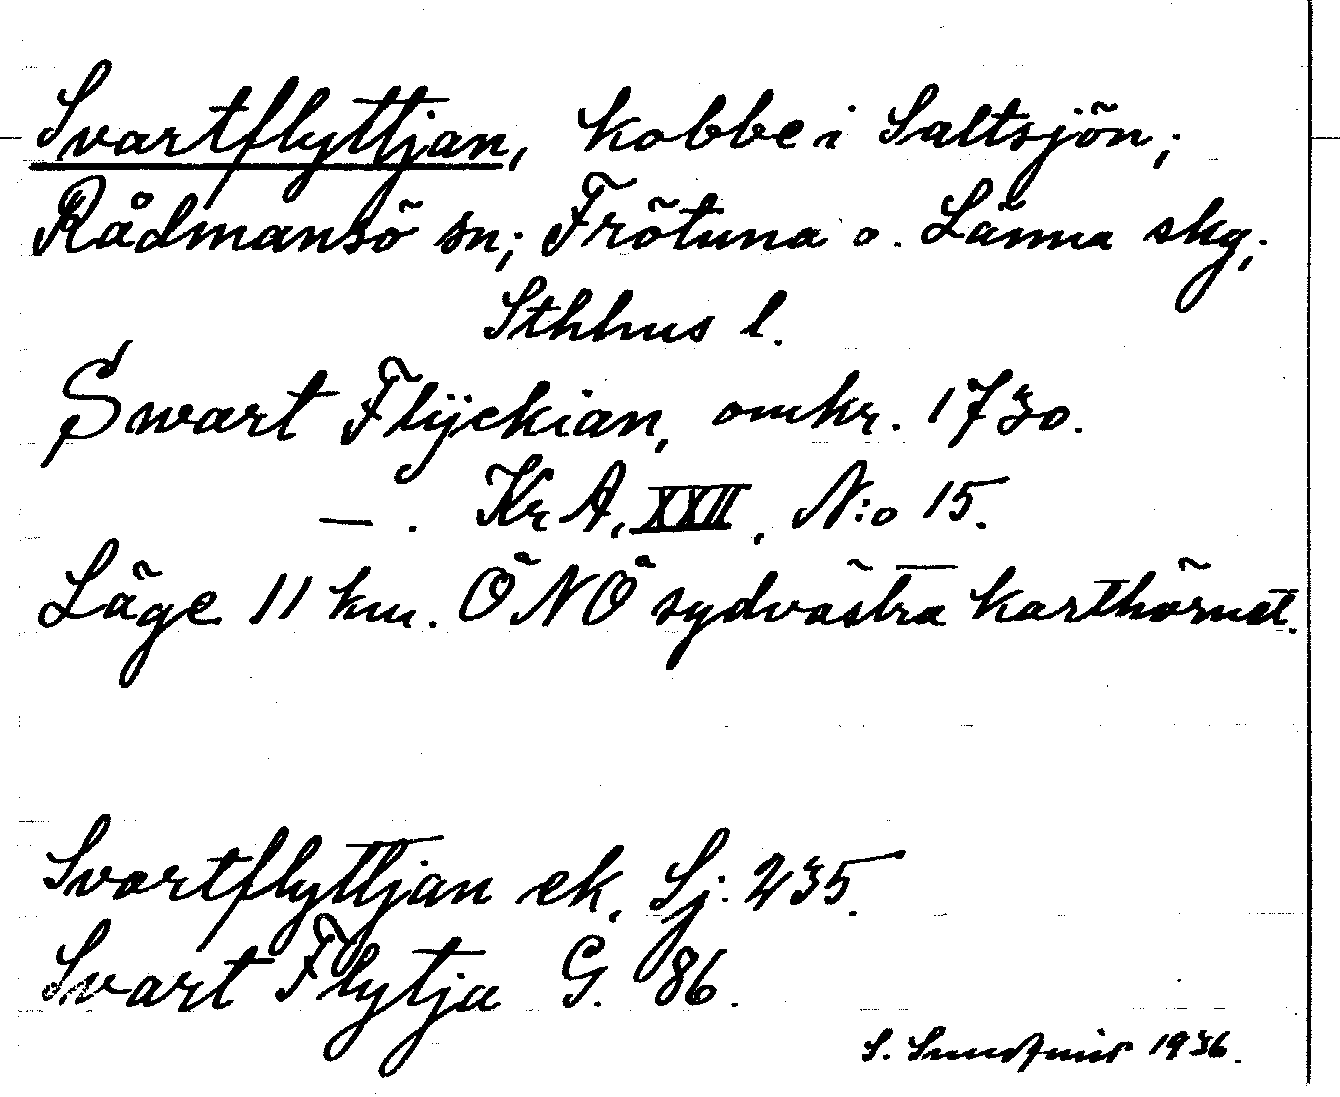 Svartflyttjan, kobbe i Saltsjön;
Rådmansö sn; Frötuna o. Länna skg;
Sthhus l.
Swart Flÿckian, omkr. 1730.
— . Kr A, XXII, N:o 15.
Läge 11 km. ÖNÖ sydvästra karthörnet.
Svartflyttjan ek. Sj: 235.
Svart Flytja G. 86.
S. 1936.